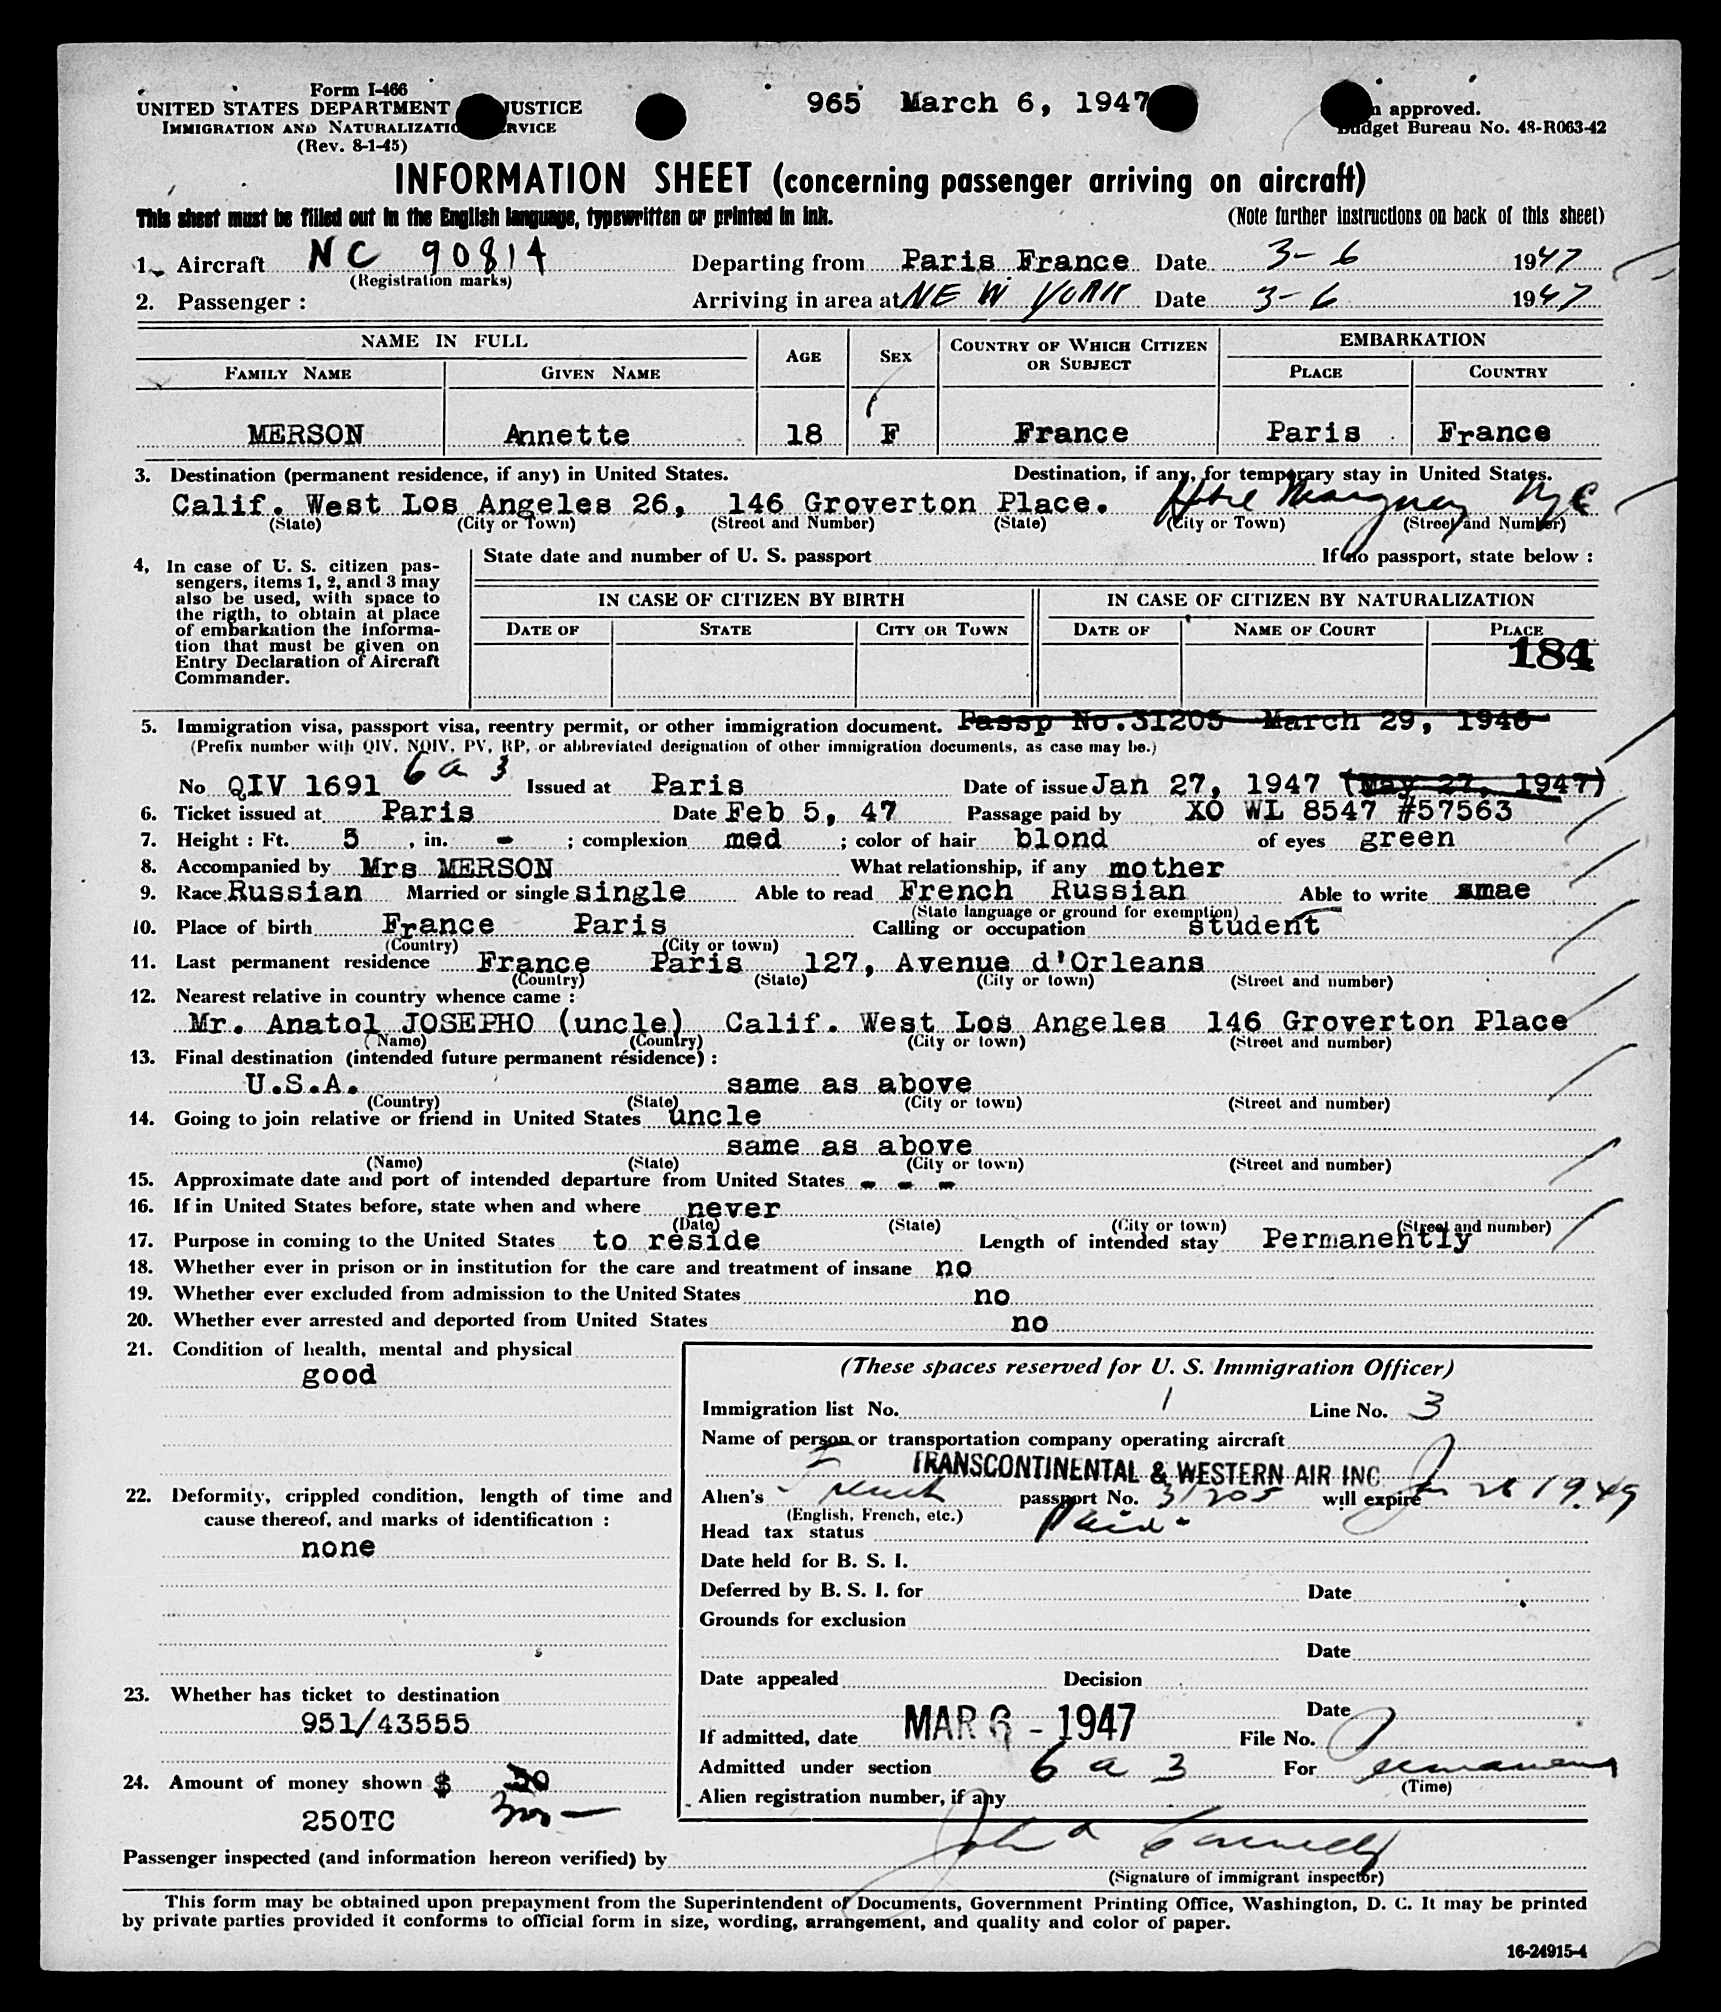 Form I-466
965 March 6, 1947
UNITED STATES DEPARTMENT JUSTICE
approved.
IMMIGRATION AND NATURALIZATIO RVICE
Budget Bureau No. 48-R063-42
(Rev. 8-1-45)
INFORMATION SHEET (concerning passenger arriving on aircraft)
This sheet must be filled out in the English language, typewritten or printed in ink.
(Note further instructions on back of this sheet)
1. Aircraft NC 90814 Departing from Paris France Date 3-6 1947
(Registration marks)
2. Passenger : Arriving in area at NEW YORK Date 3-6 1947
NAME IN FULL AGE SEX COUNTRY OF WHICH CITIZEN OR SUBJECT EMBARKATION
FAMILY NAME GIVEN NAME PLACE COUNTRY
MERSON Annette 18 F France Paris France
3. Destination (permanent residence, if any) in United States. Destination, if any, for temporary stay in United States.
Calif. West Los Angeles 26, 146 Groverton Place. NYC
(State) (City or Town) (Street and Number) (State) (City or Town) (Street and Number)
4. In case of U. S. citizen pas-
sengers, items 1, 2, and 3 may
also be used, with space to
the rigth, to obtain at place
of embarkation the informa-
tion that must be given on
Entry Declaration of Aircraft
Commander.
State date and number of U. S. passport If no passport, state below :
IN CASE OF CITIZEN BY BIRTH IN CASE OF CITIZEN BY NATURALIZATION
DATE OF STATE CITY OR TOWN DATE OF NAME OF COURT PLACE
184
5. Immigration visa, passport visa, reentry permit, or other immigration document. Passp No.31205 March 29, 1946
(Prefix number with QIV, NQIV, PV, RP, or abbreviated designation of other immigration documents, as case may be.)
6 a 3
No QIV 1691 Issued at Paris Date of issue Jan 27, 1947 (May 27, 1947)
6. Ticket issued at Paris Date Feb 5, 47 Passage paid by XO WL 8547 #57563
7. Height : Ft. 5 , in. - ; complexion med ; color of hair blond of eyes green
8. Accompanied by Mrs MERSON What relationship, if any mother
9. Race Russian Married or single single Able to read French Russian Able to write smae
(State language or ground for exemption)
10. Place of birth France Paris Calling or occupation student
(Country) (City or town)
11. Last permanent residence France Paris 127, Avenue d'Orleans
(Country) (State) (City or town) (Street and number)
12. Nearest relative in country whence came :
Mr. Anatol JOSEPHO (uncle) Calif. West Los Angeles 146 Groverton Place
(Name) (Country) (City or town) (Street and number)
13. Final destination (intended future permanent résidence) :
U.S.A. same as above
(Country) (State) (City or town) (Street and number)
14. Going to join relative or friend in United States uncle
same as above
(Name) (State) (City or town) (Street and number)
15. Approximate date and port of intended departure from United States - - -
16. If in United States before, state when and where never
(Date) (State) (City or town) (Street and number)
17. Purpose in coming to the United States to reside Length of intended stay Permanently
18. Whether ever in prison or in institution for the care and treatment of insane no
19. Whether ever excluded from admission to the United States no
20. Whether ever arrested and deported from United States no
21. Condition of health, mental and physical
good
22. Deformity, crippled condition, length of time and
cause thereof, and marks of identification :
none
23. Whether has ticket to destination
951/43555
24. Amount of money shown $ 50
250TC 300-
(These spaces reserved for U. S. Immigration Officer)
Immigration list No. 1 Line No. 3
Name of person or transportation company operating aircraft
TRANSCONTINENTAL & WESTERN AIR INC
Alien's French passport No. 31205 will expire Jan 26 1949
(English, French, etc.)
Head tax status Paid
Date held for B. S. I.
Deferred by B. S. I. for Date
Grounds for exclusion
Date
Date appealed Decision
Date
If admitted, date MAR 6 - 1947 File No.
Admitted under section 6 a 3 For Permanent
(Time)
Alien registration number, if any
Passenger inspected (and information hereon verified) by John
(Signature of immigrant inspector)
This form may be obtained upon prepayment from the Superintendent of Documents, Government Printing Office, Washington, D. C. It may be printed
by private parties provided it conforms to official form in size, wording, arrangement, and quality and color of paper.
16-24915-4